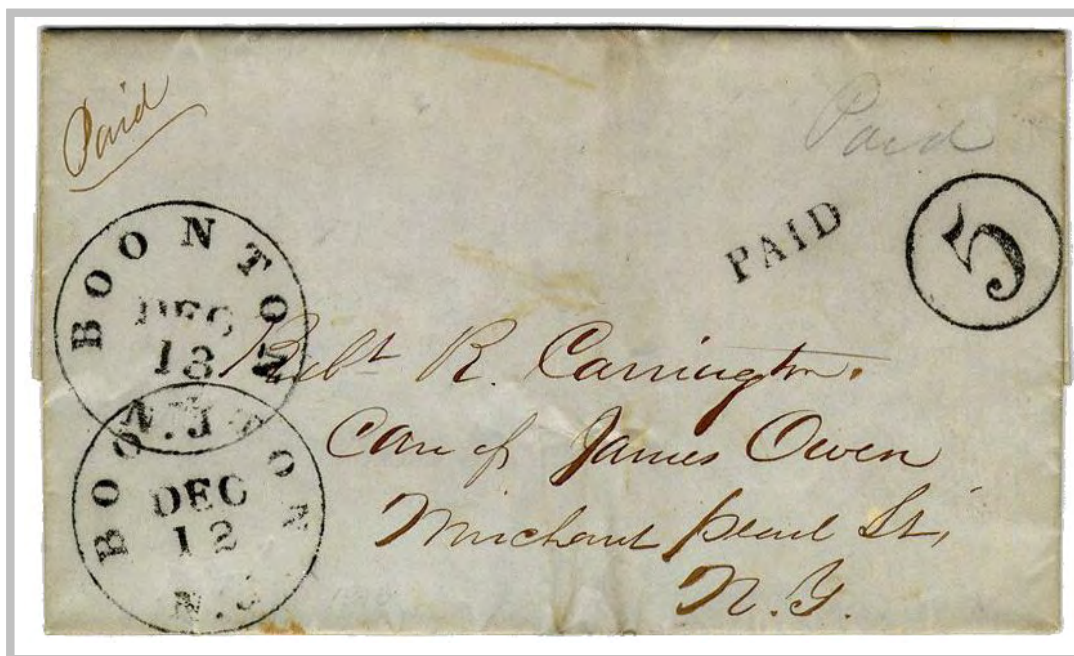 Paid
Paid
PAID
5
BOONTON
DEC
13
N.J.
BOONTON
DEC
12
N.J.
Robt R. Carrington.
Care of James Owen
Merchant pearl St,
N.Y.